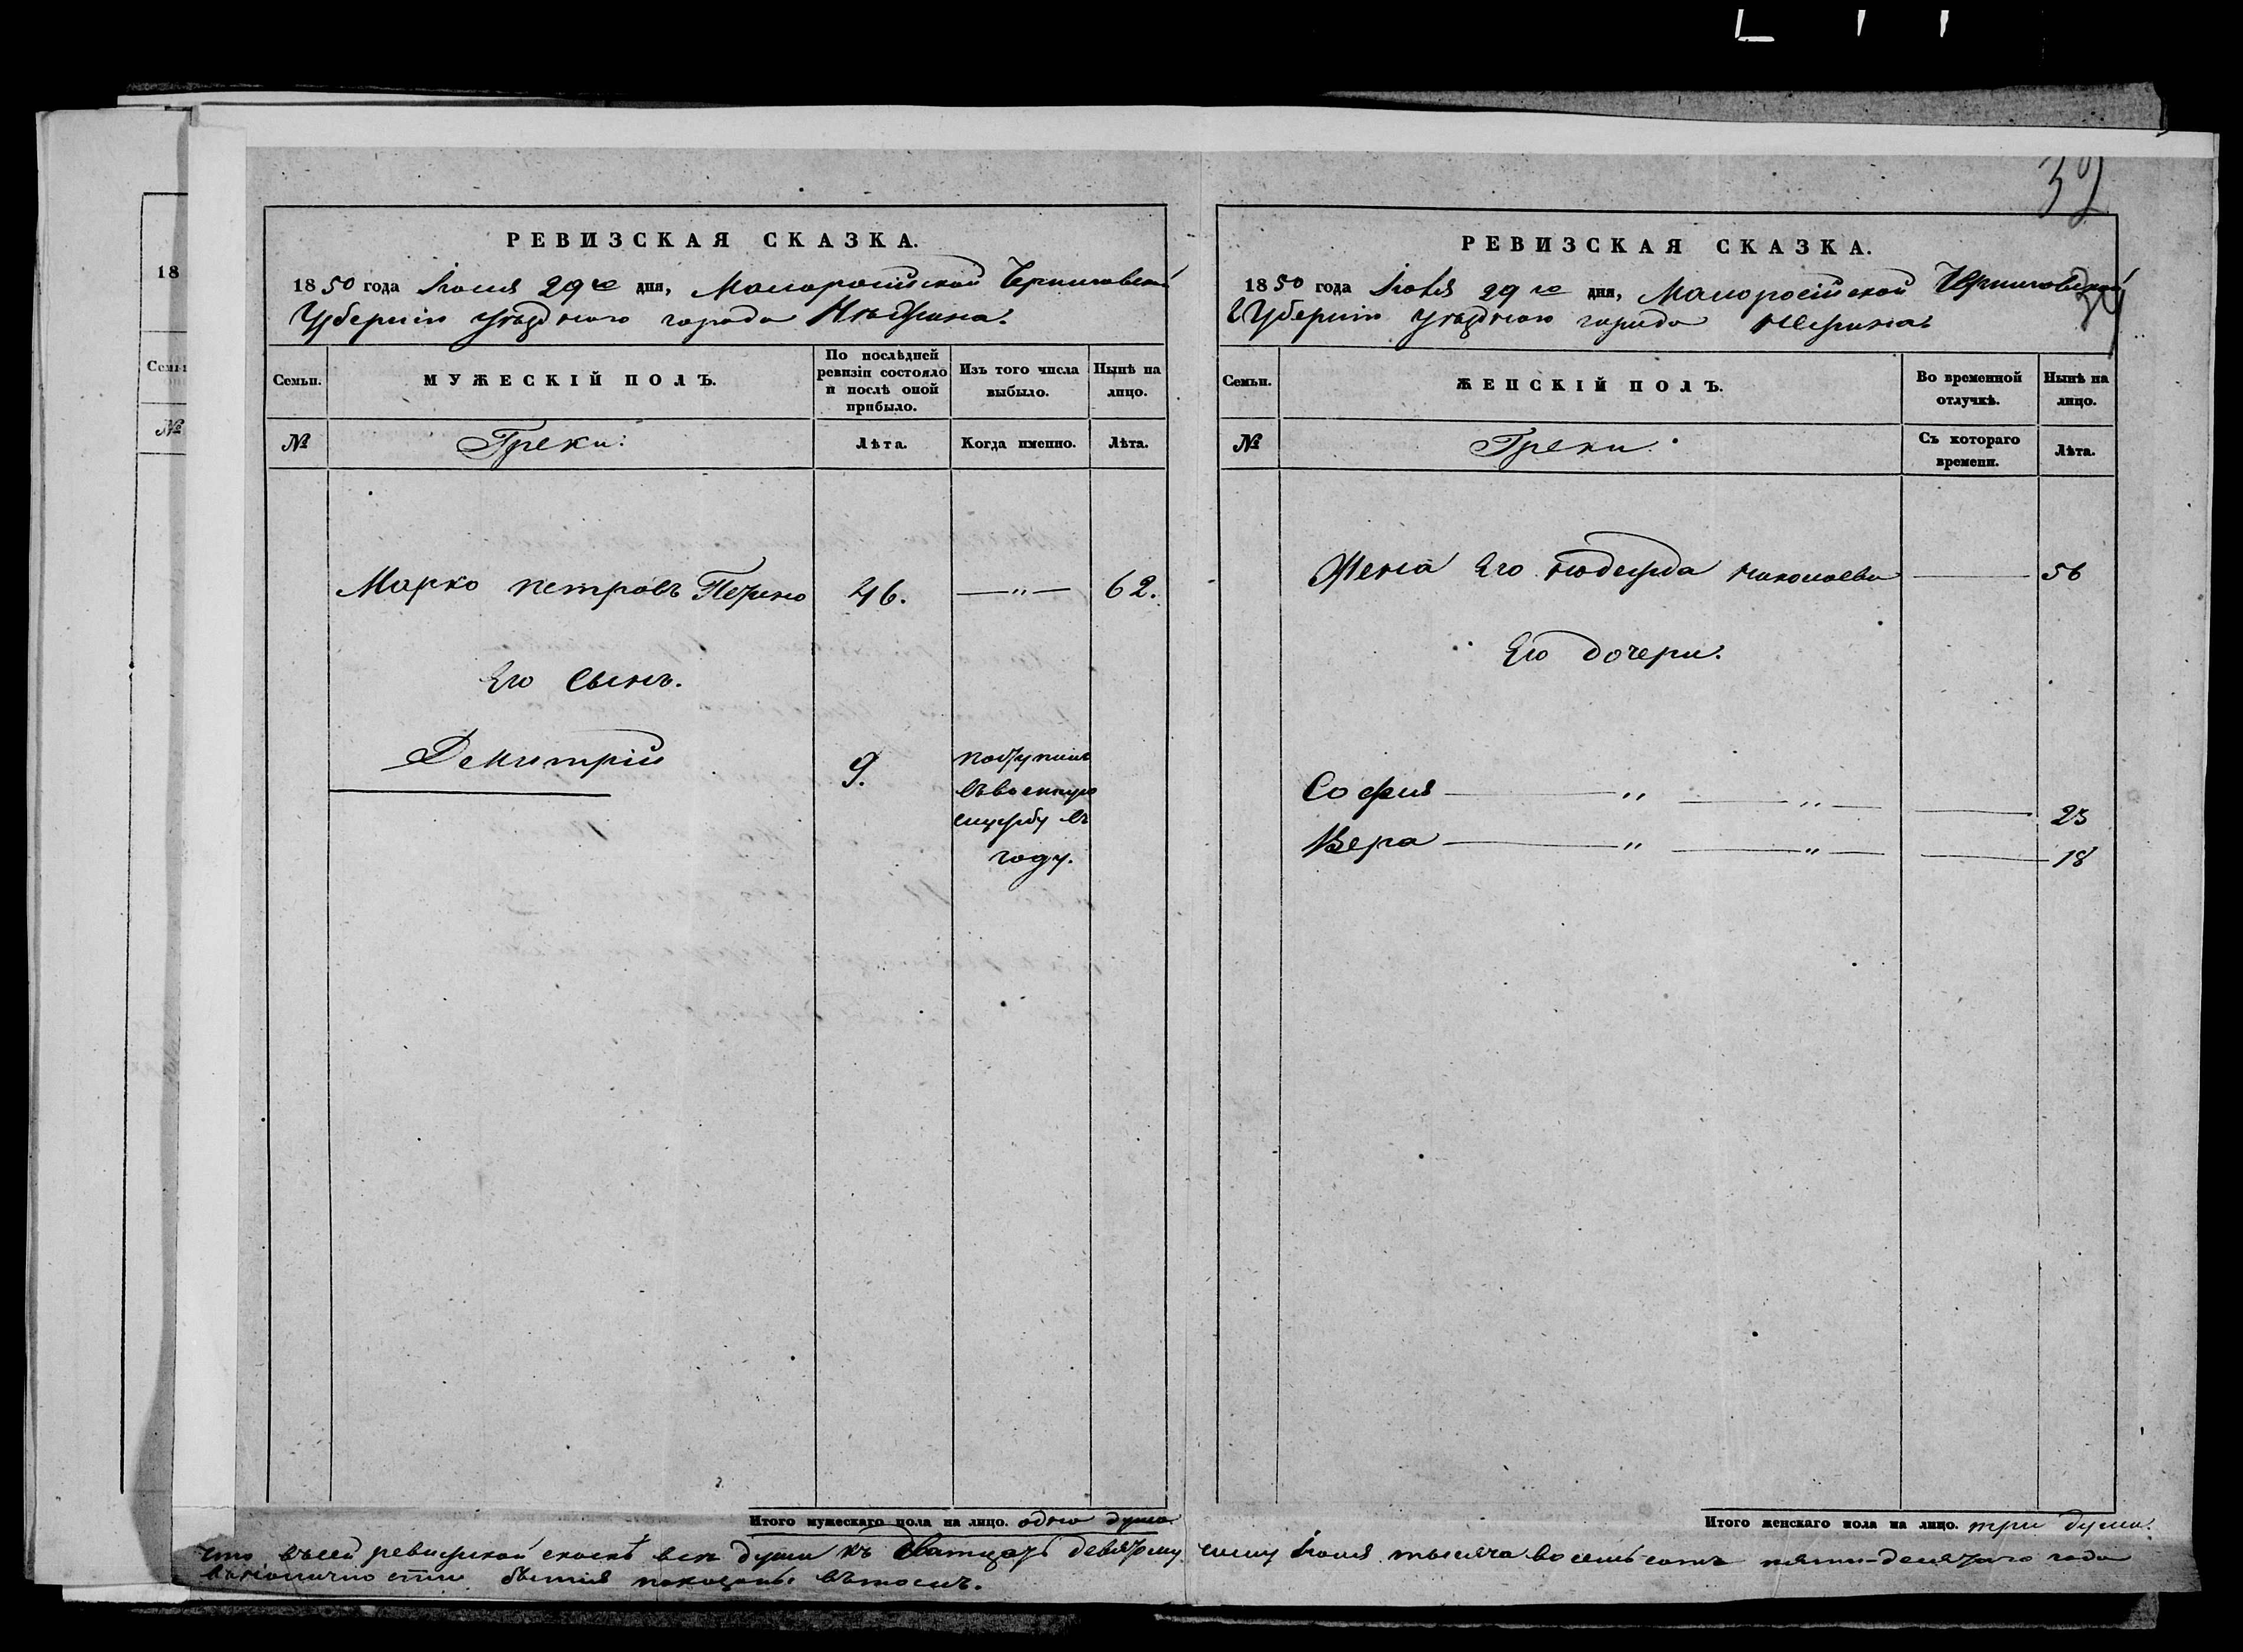 39
РЕВИЗСКАЯ СКАЗКА.
1850 года Іюля 29го дня, Малоросійской Черниговской
Губерніи уѣзднаго города Нѣжина.
Семьи. МУЖЕСКІЙ ПОЛЪ. По послѣдней ревизіи состояло и послѣ оной прибыло. Изъ того числа выбыло. Нынѣ на лицо.
№ Греки: Лѣта. Когда именно. Лѣта.
Марко Петровъ 46. —„— 62.
Его Сынъ.
Демитрій 9. поступилъ
въ военную
службу въ
году.
Итого мужескаго пола на лицо. одна душа
РЕВИЗСКАЯ СКАЗКА.
1850 года Іюля 29го дня, Малоросійской Черниговской
Губерніи уѣзднаго города Нежина
Семьи. ЖЕНСКІЙ ПОЛЪ. Во временной отлучкѣ. Нынѣ на лицо.
№ Греки. Съ котораго времени. Лѣта.
Жена Его Николаева — 56
Его дочери.
София — „ — „ — — 23
Вера — „ — „ — — 18
Итого женскаго пола на лицо. три души.
что въ сей ревизской сказкѣ все души къ дватцать девятому сему Іюля тысяча восемь сотъ пяти-десятого года
въ бытия показаны въ томъ.
18
Семьи
№